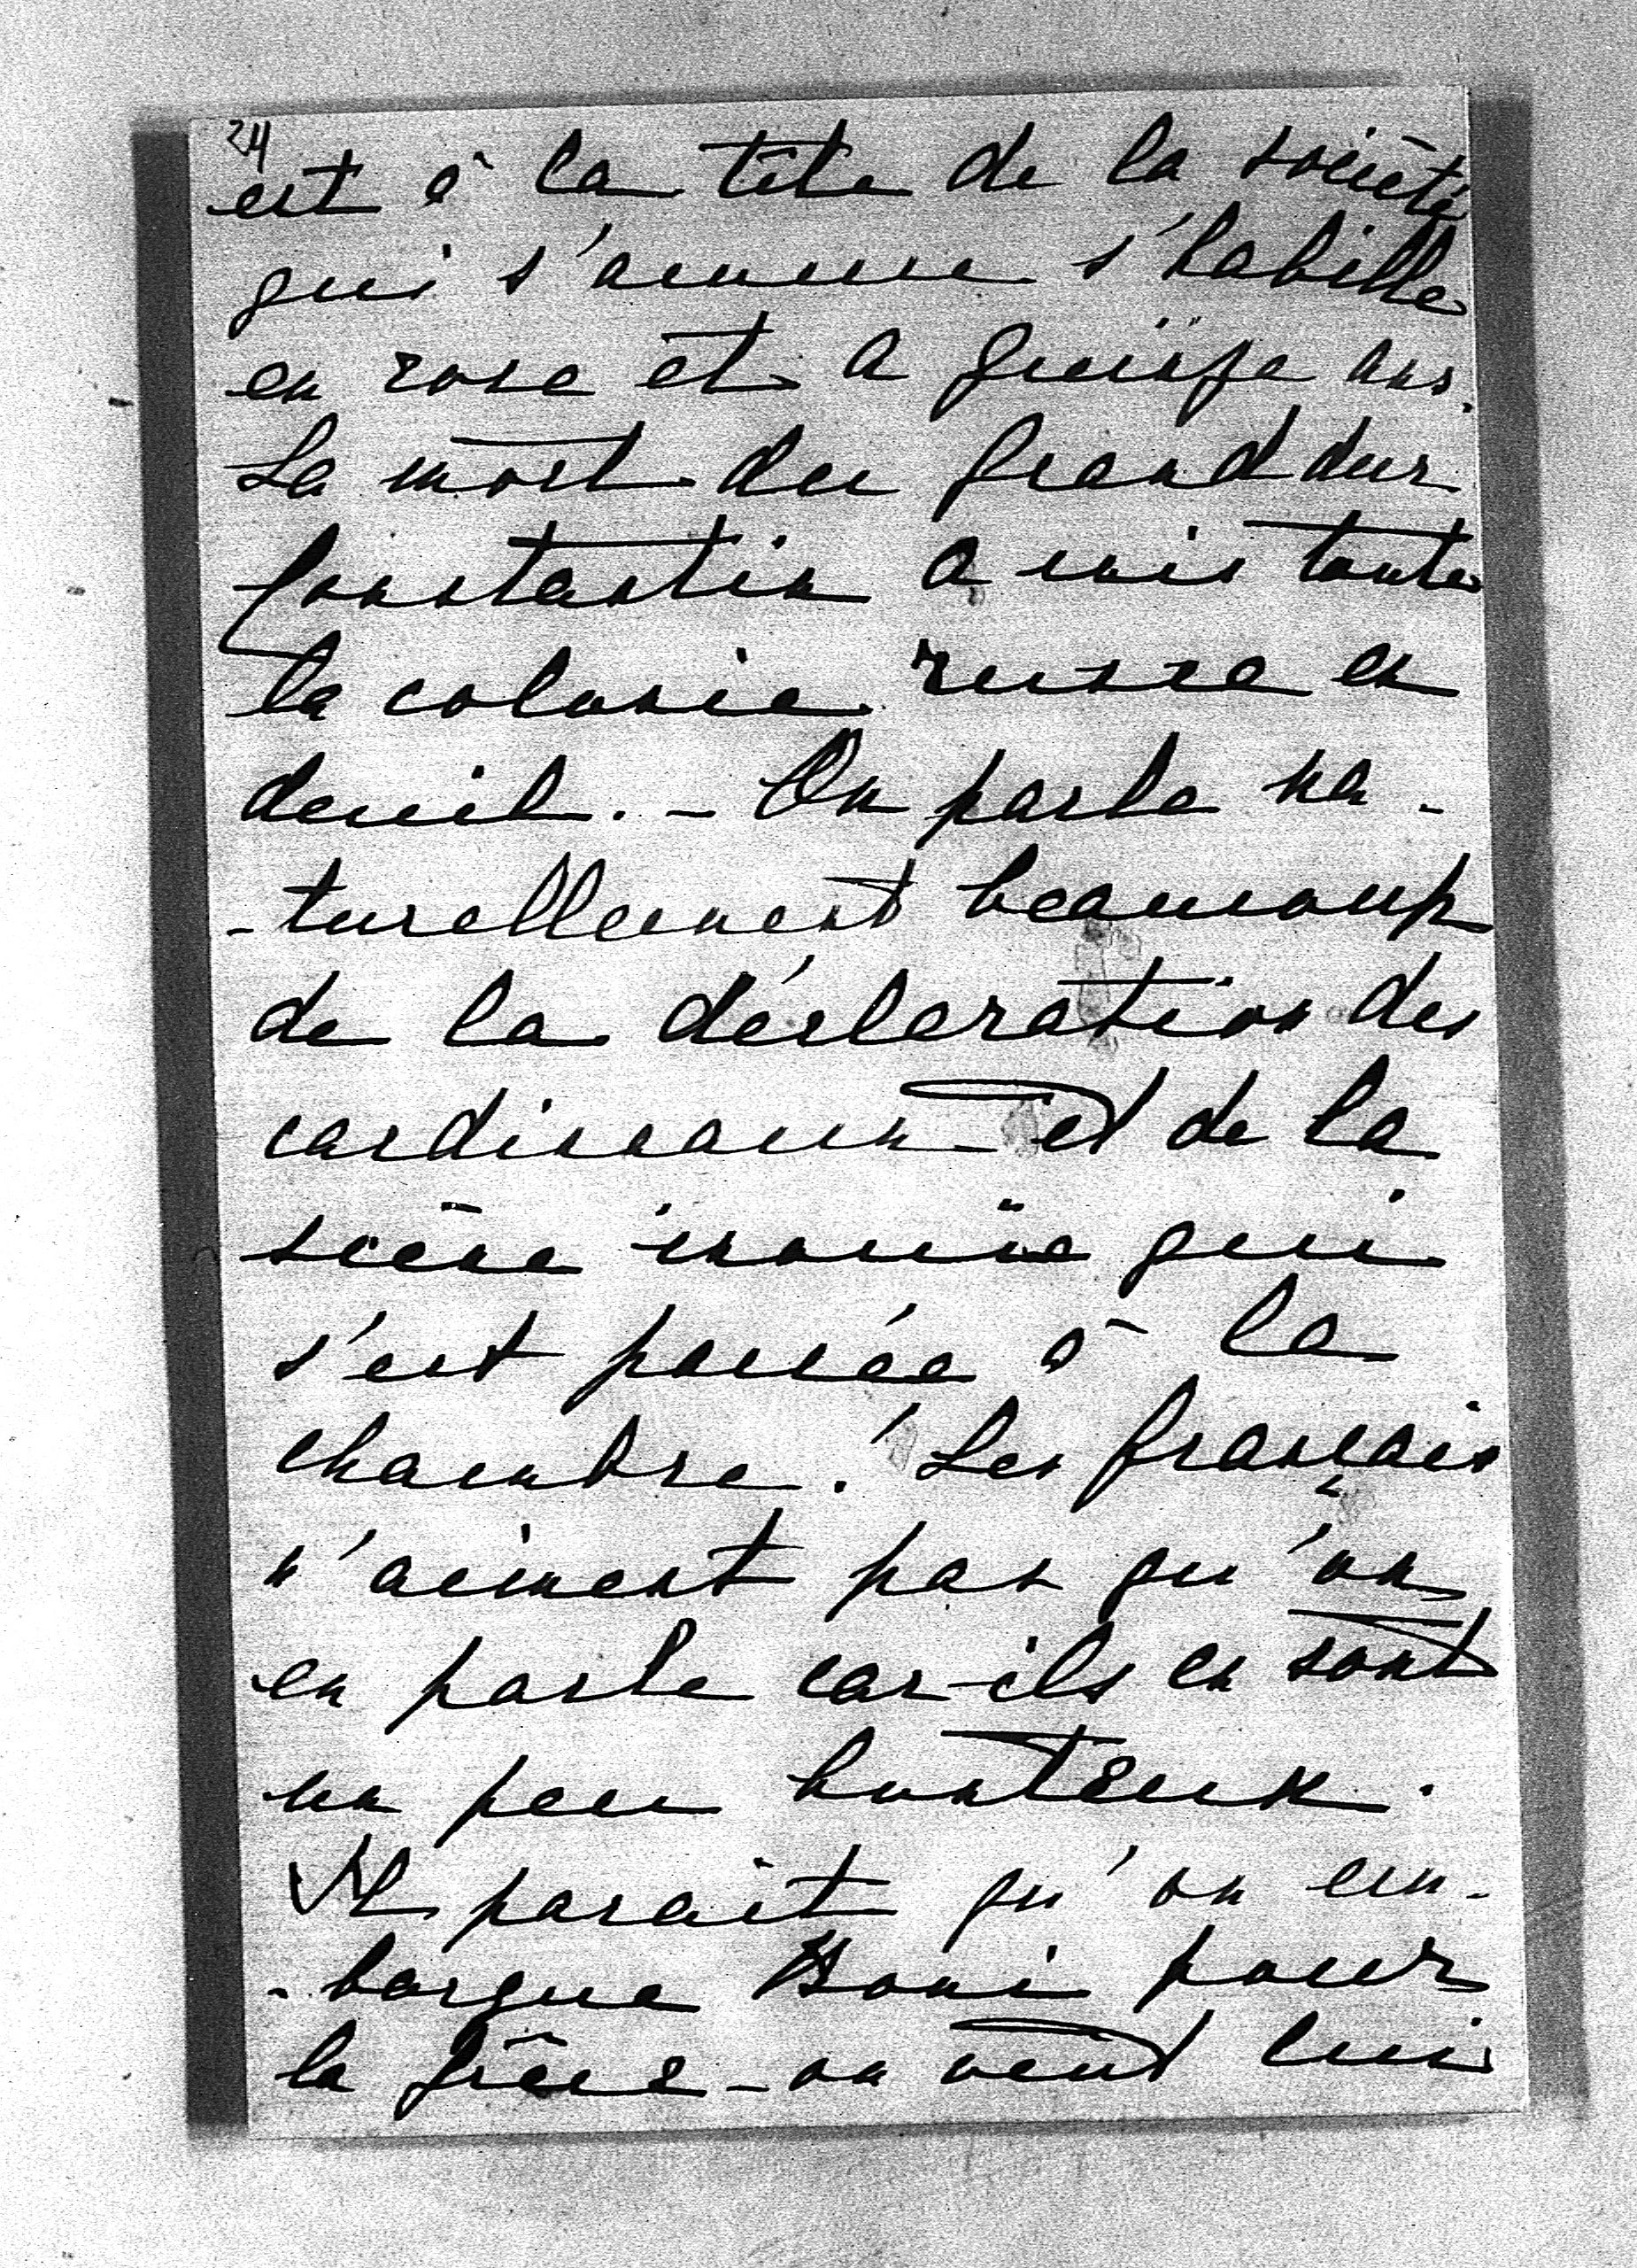 24
est à la tête de la société
qui s'amuse s'habille
en rose et a quinze ans.
La mort du grand duc
Constantin a mis toute
la colonie russe en
deuil. - On parle na-
-turellement beaucoup
de la déclaration des
cardinaux et de la
scène inouïe qui
s'est passée à la
chambre! Les français
n'aiment pas qu'on
en parle car ils en sont
un peu honteux.
Il parait qu'on em-
-barque Boni pour
la Grèce - on veut lui